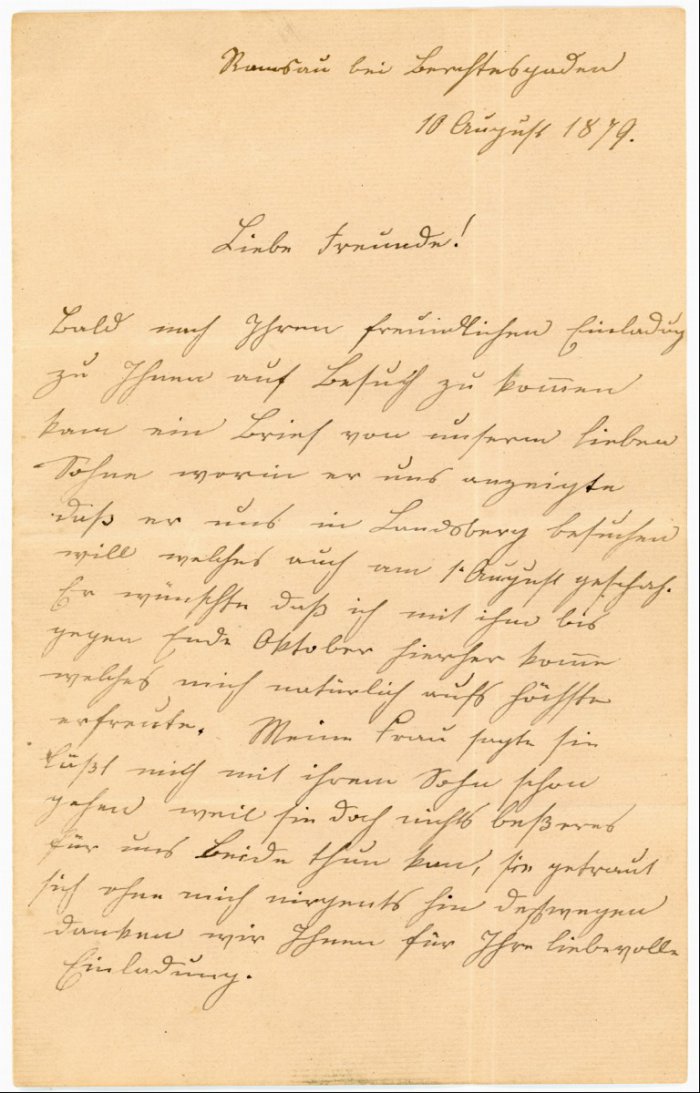 Ramsau bei Berchtesgaden
10 August 1879.
Liebe Freunde!
Bald nach Ihren freundlichen Einladung
zu Ihnen auf Besuch zu kom̅en
kam ein Brief von unserm lieben
Sohne worin er uns anzeigte
daß er uns in Landsberg besuchen
will welches auch am 1. August geschah.
Er wünschte daß ich mit ihm bis
gegen Ende Oktober hierher kom̅e
welches mich natürlich aufs höchste
erfreute. Meine Frau sagte sie
läßt mich mit ihrem Sohn schon
gehen weil sie doch nichts beßeres
für uns Beide thun kan, sie getraut
sich ohne mich nirgents hin deßwegen
danken wir Ihnen für Ihre liebevolle
Einladung.